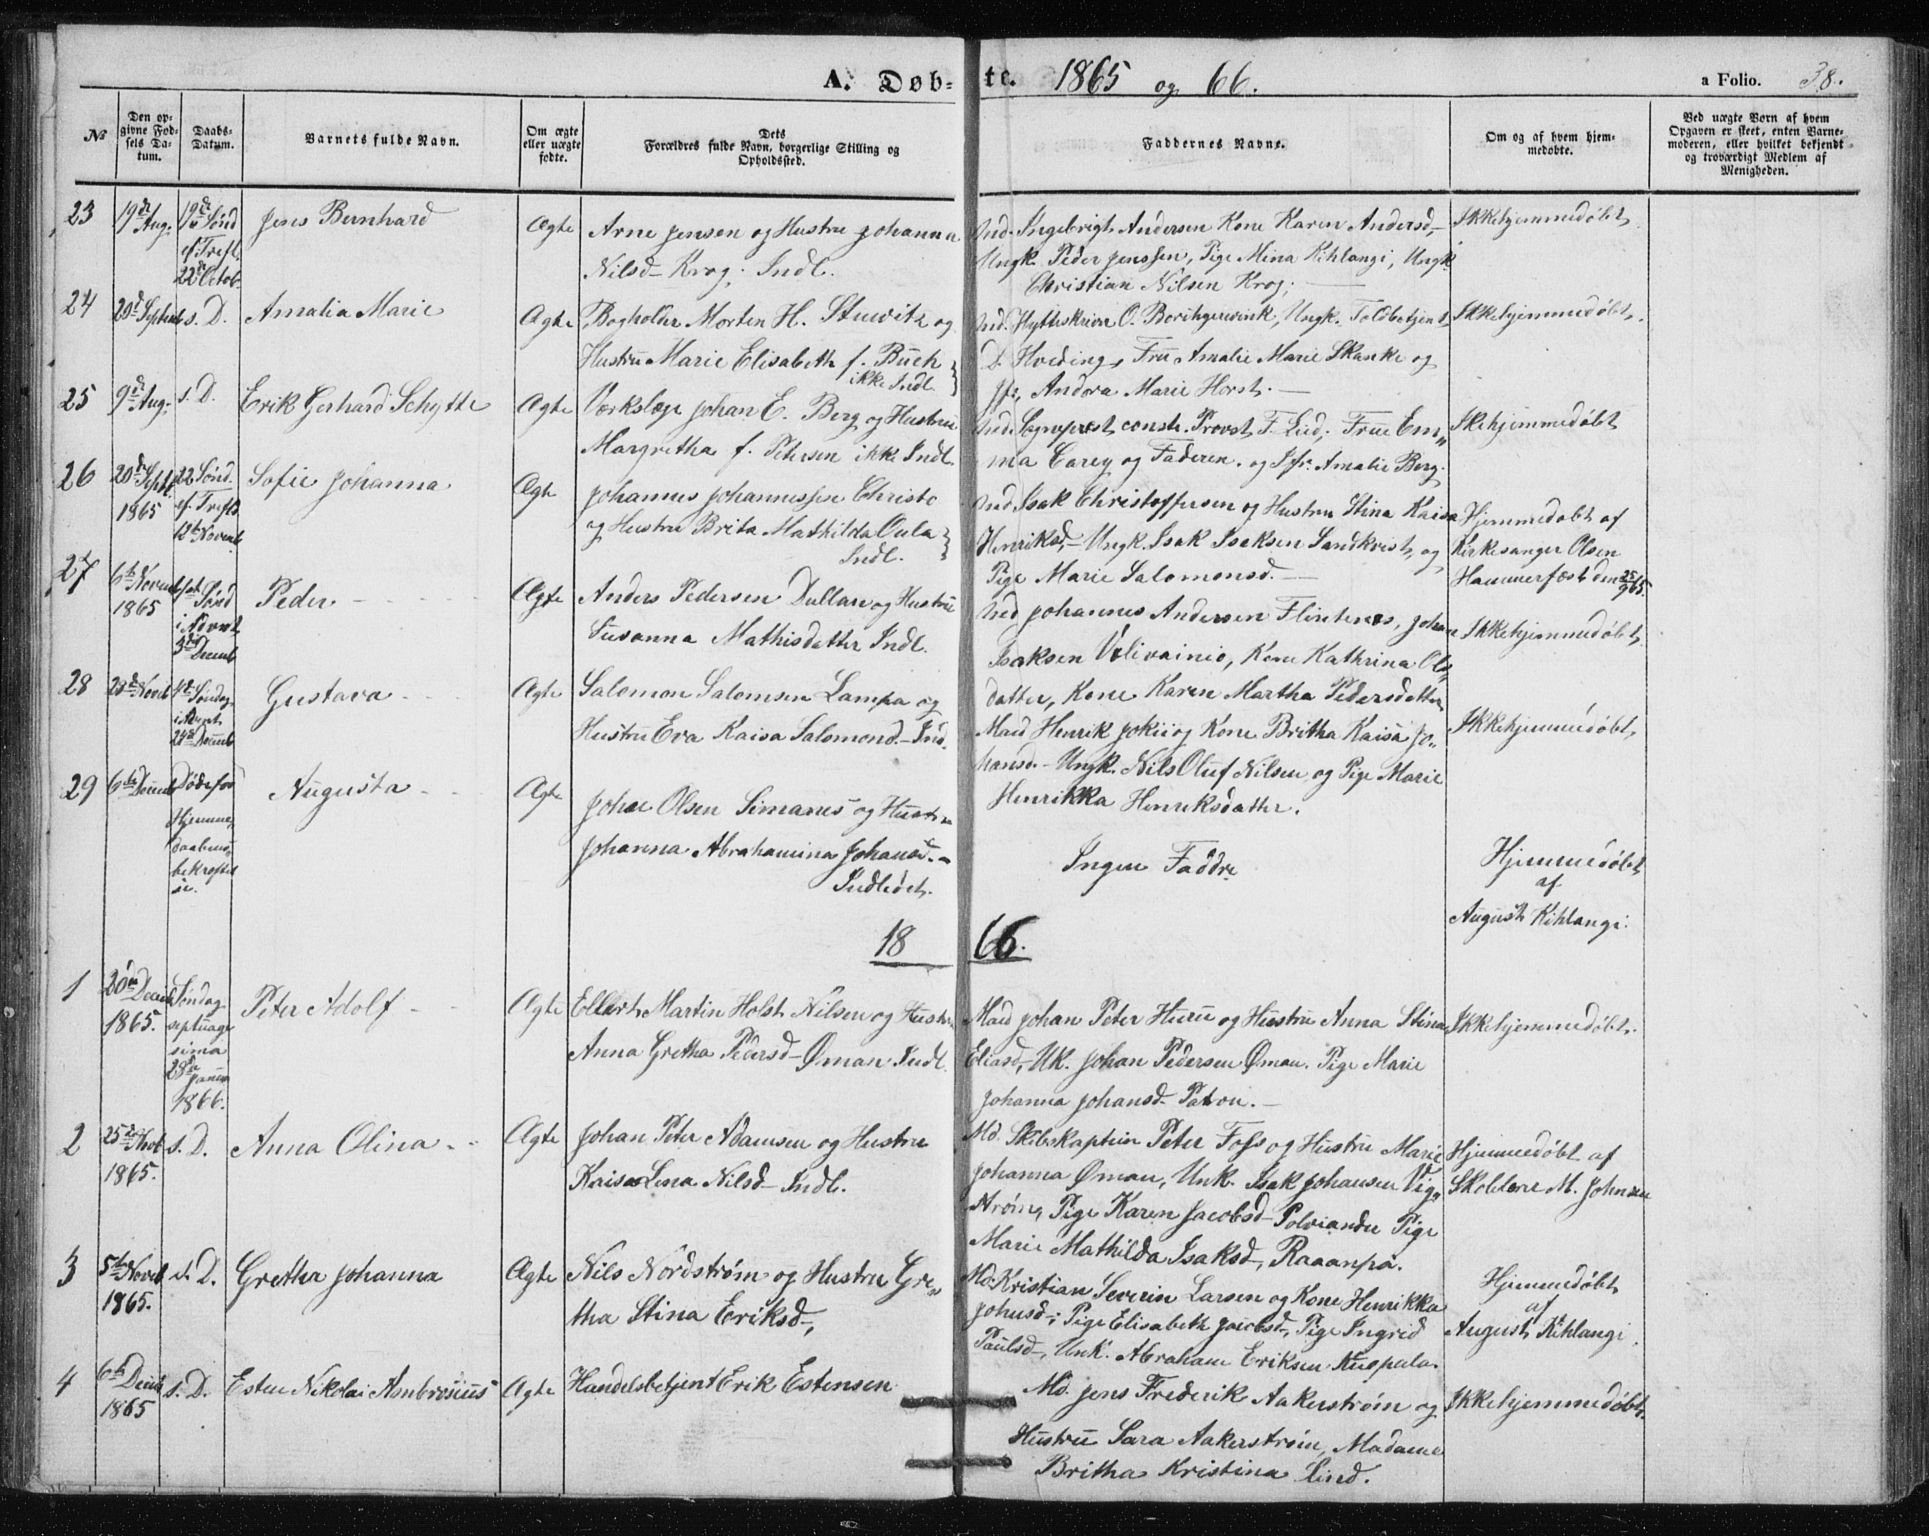 A. Døb-
te. 1865 og 66.
a Folio. 38.
No
Den op-
givne Fød-
sels Da-
tum.
Daabs-
Datum.
Barnets fulde Navn.
Om ægte
eller uægte
fødte.
Dets
Forældres fulde Navn, borgerlige Stilling og
Opholdssted.
Faddernes Navne.
Om og af hvem hjem-
medøbte.
Ved uægte Børn af hvem
Opgaven er skeet, enten Barne-
moderen, eller hvilket bekjendt
og troværdigt Medlem af
Menigheden.
23
19de Aug.
19de Sønd
ef. Trefl.
22de Octob
Jens Bernhard
Ægte
Arne Jensen og Hustru Johanna
Nilsd- Krog; Indl.
Ind. Ingebrigt Andersen Kone Karen Andersd,-
Ungk. Peder Jenssen, Pige Mina Kihlangi, Ungk
Christian Nilsen Krog;
Ikkehjemmedøbt
24
s. D.
Amalia Marie
Ægte
Bogholder Morten H. Stuwitz og
Hustru Marie Elisabeth f. Buch
ikke Indl.
Ind. Hytteskriver O. Ungk. Toldbetjent
D. Hveding, Frue Amalie Marie Skanke og
Jfr. Andora Marie Horst.
Ikkehjemmedøbt.
25
9de Aug;
s. D.
Erik Gerhard Schytte
Ægte
Værkslæge Johan E. Berg og Hustrue
Margretha f. Petersen ikke Indl.
Ind. Sognepræst const. Provst F. Lied; Frue Em„
ma Carey og Faderen. og Jfr. Amalie Berg.
Ikehjemmedøbt
26
20de Septb.
1865
22 Sønd.
ef. Trefld.
12te Novemb.
Sofie Johanna
Ægte
Johannes Johannessen Christo
og Hustru Brita Mathilda Oula
Indl.
Ind Isak Christoffersen og Hustru Stina Kaisa
Henriksd,- Ungk. Isak Isaksen Sandkvist, og
Pige Marie Salomonsd.
Hjemmedøbt af
Kirkesanger Olsen
Hammerfest den 25/9 65.
27
6te Novemb
1865
1st Sønd
i Advent
3de Decemb
Peder
Ægte
Anders Pedersen Dullan og Hustru
Susanna Mathisdatter Indl.
Ind Johannes Andersen Johan
Isaksen Vœlivainio, Kone Kathrina Ols„
datter, Kone Karen Martha Pedersdatter
Ikkehjemmedøbt
28
4de Søndag
i Advent
24de Decemb
Gustava
Ægte
Salomon Salomsen Lampa og
Hustru Eva Kaisa Salomond.- Ind.
Mad Henrik Jokii og Kone Britha Kaisa Jo„
hansd.- Ungk. Nils Oluf Nilsen og Pige Marie
Henrikka Henriksdatter.
Ikkehjemmedøbt,
29
6te Decemb
Døde før
Hjemme„
daabens
bekræftel
se.
Augusta
Ægte
Johan Olsen Simanes og Hustru
Johanna Abrahamina Johansd.-
Indledet.
Ingen Faddre
Hjemmedøbt
af
August Kihlangi.
18 66.
1
1865.
Søndag
septuage
sima
28de
Januar
1866.
Peter Adolf
Ægte
Ellert Martin Holst Nilsen og Hustru
Anna Gretha Pedersd- Øman Indl.
Mad Johan Peter Huru og Hustru Anna Stina
Eliasd, Uk. Johan Pedersen Øman. Pige Marie
Johanna Johansd- Paton.
Ikkehjemmedøbt.
2
1865.
s. D.
Anna Olina
Ægte
Johan Peter Adamsen og Hustru
Kaisa Lena Nilsd- Indl.
Md. Skibskaptein Peter Foss og Hustru Marie
Johanna Øman, Unk. Isak Johansen Vig„
strøm, Pige Karen Jacobsd- Polviander Pige
Marie Mathilda Isaksd, Raaanpa.
Hjemmedøbt af
Skolelære M. Johnsen
3
5te Novb
1865.
s. D.
Gretha Johanna
Ægte
Nils Nordstrøm og Hustru Gre„
tha Stina Eriksd-,
Md. Kristian Severin Larsen og Kone Henrikka
Johnsd-; Pige Elisabeth Jacobsd-, Pige Ingrid
Paulsd-, Unk. Abraham Eriksen Kuopala.
Hjemmedøbt
af
August Kihlangi.
4
6te Decb
1865
s. D.
Esten Nikolai Ambrosius
Ægte
Handelsbetjent Erik Estensen
Md. Jens Frederik Aakerstrøm og
Hustru Sara Aakerstrøm, Madame
Britha Kristina Lind.
Ikkehjemmedøbt.